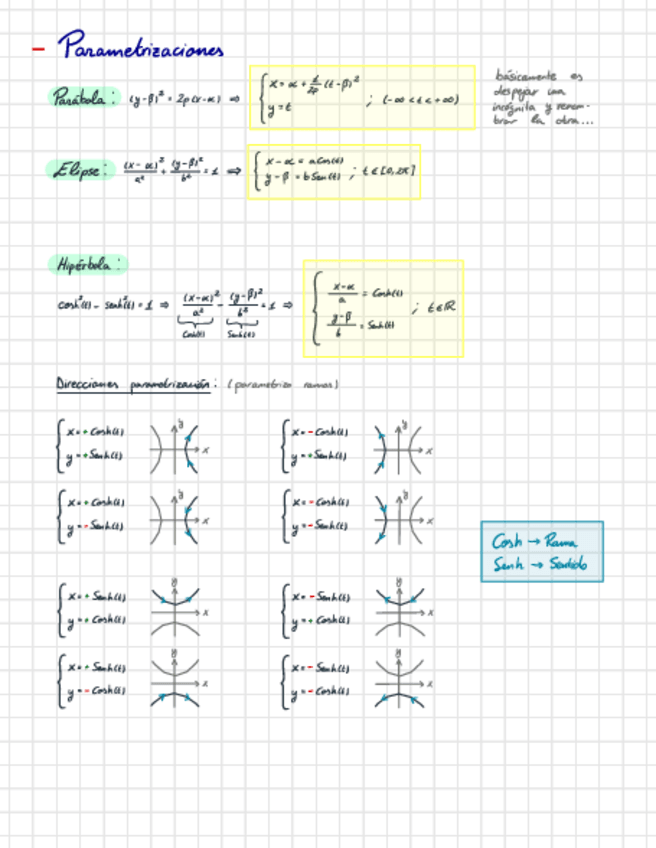 – Parametrizaciones
Parábola: (y-β)² = 2p(x-α) ⇒ { x = α + 1/2p (t-β)² y = t ; (-∞ < t < +∞)
básicamente es
despejar una
incógnita y renom-
brar la otra...
Elipse: (x-α)²/a² + (y-β)²/b² = 1 ⇒ { x-α = a Cos(t) y-β = b Sen(t) ; t ∈ [0,2π]
Hipérbola:
cosh²(t) - senh²(t) = 1 ⇒ (x-α)²/a² - (y-β)²/b² = 1 ⇒ { x-α/a = Cosh(t) y-β/b = Senh(t) ; t ∈ ℝ
Cosh(t) Senh(t)
Direcciones parametrización: (parametriza ramas)
x = + Cosh(t) y x
y = + Senh(t)
x = - Cosh(t) y x
y = + Senh(t)
x = + Cosh(t) y x
y = - Senh(t)
x = - Cosh(t) y x
y = - Senh(t)
Cosh → Rama
Senh → Sentido
x = + Senh(t) y x
y = + Cosh(t)
x = - Senh(t) y x
y = + Cosh(t)
x = + Senh(t) y x
y = - Cosh(t)
x = - Senh(t) y x
y = - Cosh(t)